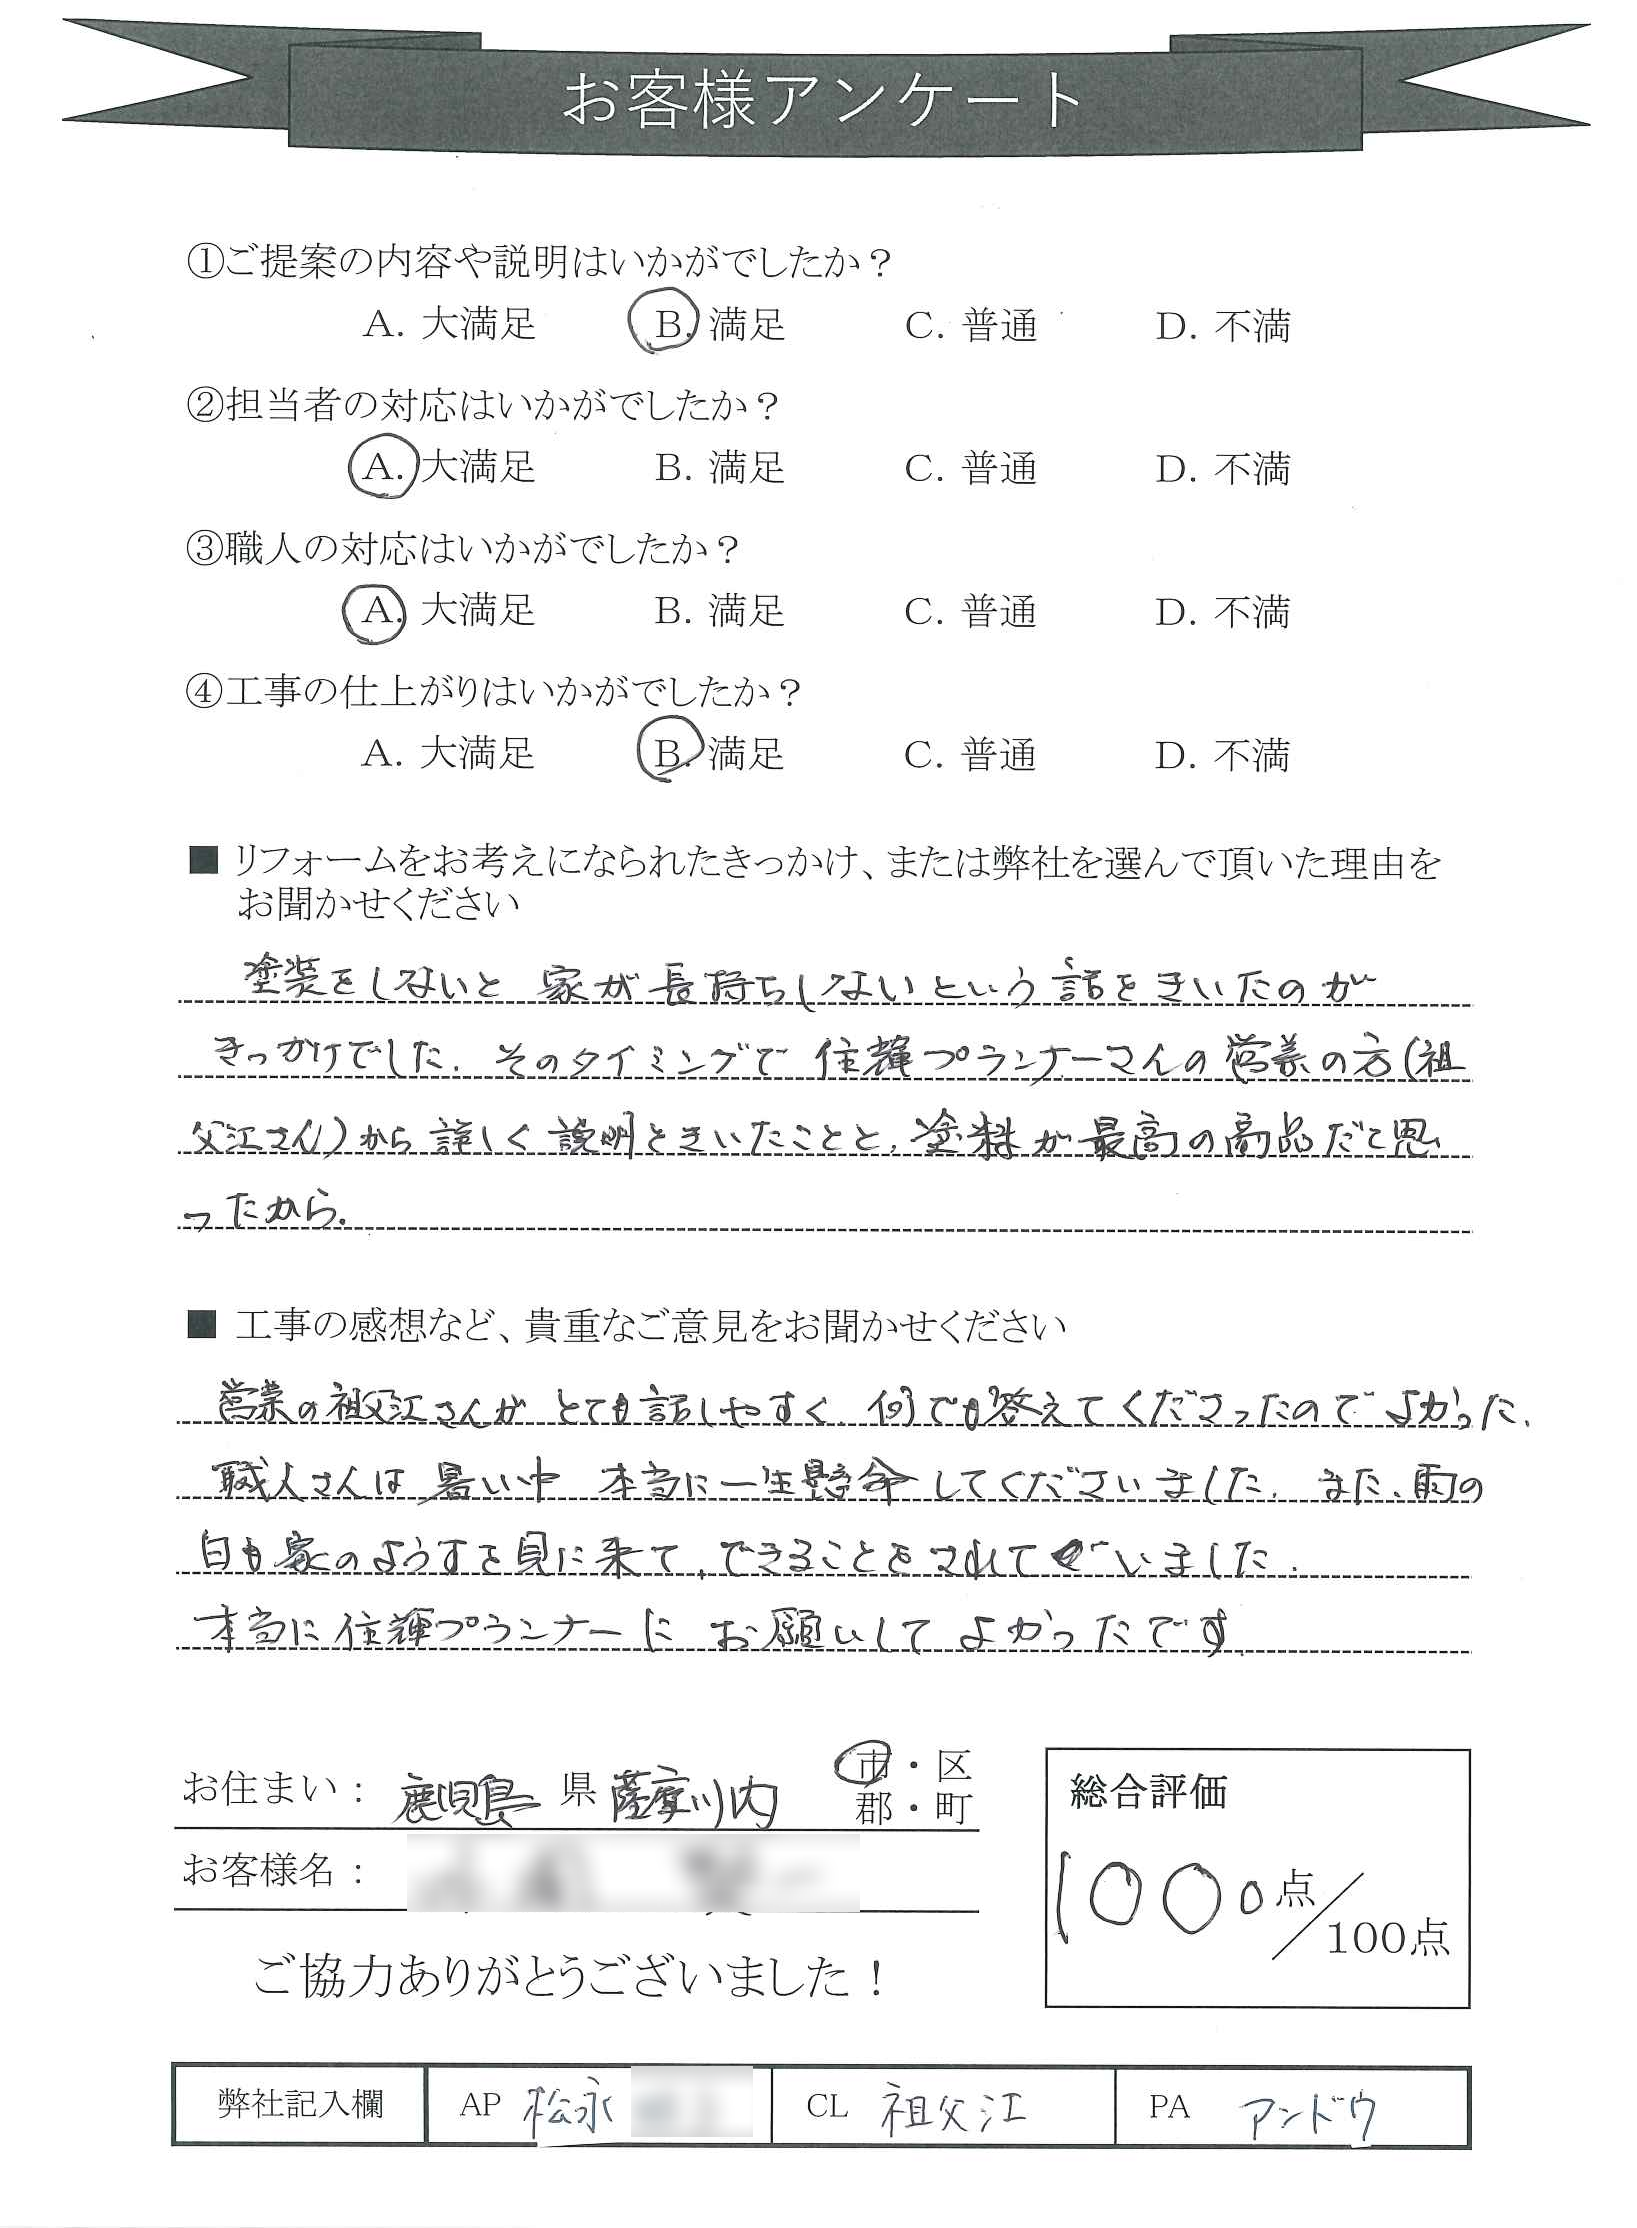 お客様アンケート
①ご提案の内容や説明はいかがでしたか？
A. 大満足 B. 満足 C. 普通 D. 不満
②担当者の対応はいかがでしたか？
A. 大満足 B. 満足 C. 普通 D. 不満
③職人の対応はいかがでしたか？
A. 大満足 B. 満足 C. 普通 D. 不満
④工事の仕上がりはいかがでしたか？
A. 大満足 B. 満足 C. 普通 D. 不満
■ リフォームをお考えになられたきっかけ、または弊社を選んで頂いた理由を
お聞かせください
塗装をしないと 家が長持ちしないという話をきいたのが
きっかけでした。そのタイミングで 住輝プランナーさんの営業の方(祖
父江さん)から 詳しく説明をきいたことと、塗料が最高の商品だと思
ったから。
■ 工事の感想など、貴重なご意見をお聞かせください
営業の祖父江さんが とても話しやすく、何でも答えてくださったのでよかった、
職人さんは 暑い中 本当に一生懸命してくださいました。また、雨の
日も家のようすを見に来て、できることをされていました。
本当に住輝プランナーに お願いしてよかったです。
お住まい： 鹿児島 県 薩摩川内 市・区
郡・町
お客様名：
総合評価
100。点／100点
ご協力ありがとうございました！
弊社記入欄 AP 松永 CL 祖父江 PA アンドウ